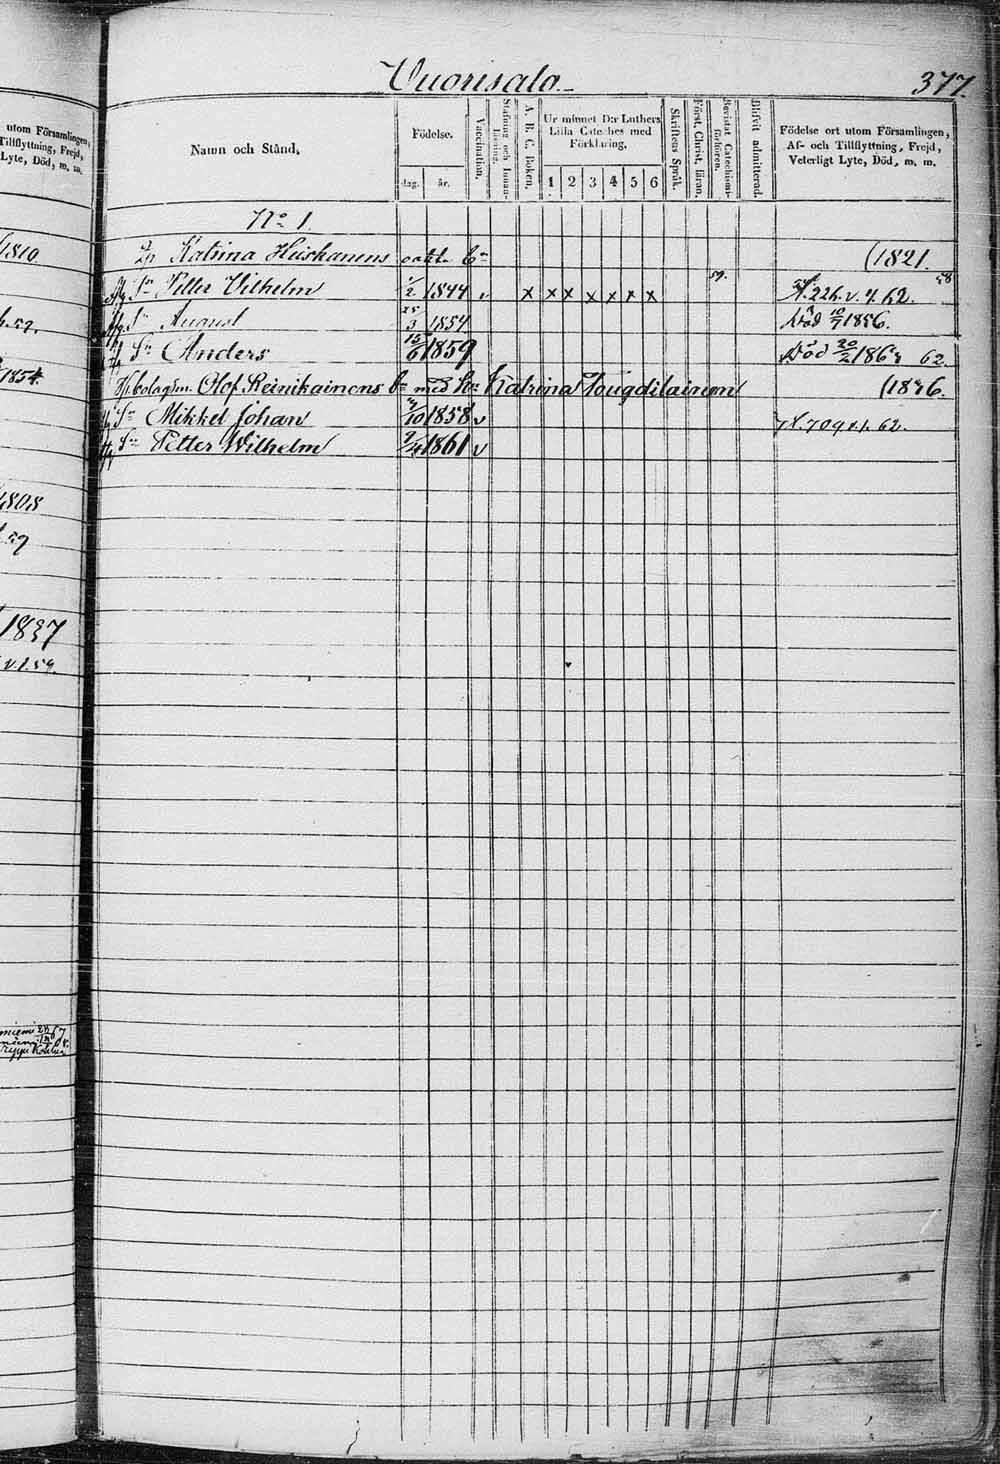 utom Församlingen,
Tillflyttning, Frejd,
Lyte, Död, m. m.
1810
1854
1808
1837
v.1.59.
Vuorisalo
377.
Namn och Stånd,
Födelse.
dag. år.
Vaccination.
Stafning och Innanläsning.
A. B. C. Boken.
Ur minnet D:r Luthers
Lilla Cateches med
Förklaring.
1 2 3 4 5 6
Skriftens Språk.
Först. Christ. läran.
Bevistat Catechismiförhören.
Blifvit admitterad.
Födelse ort utom Församlingen,
Af- och Tillflyttning, Frejd,
Veterligt Lyte, Död, m. m.
No 1.
Katrina Heiskanens oäkta bn (1821.
Sn Petter Vilhelm 1/2 1844 v x x x x x x x 59. 58 N.226.v.4.62.
Sn August 25/3 1854 Död 10/7 1856.
Sn Anders 15/6 1859 Död 20/2 186 62.
bolagsm. Olof Reinikainens bn med hu Katrina (1836.
Sn Mikkel Johan /10 1858 v N.709.v.1.62.
Sn Petter Wilhelm 9/4 1861 v